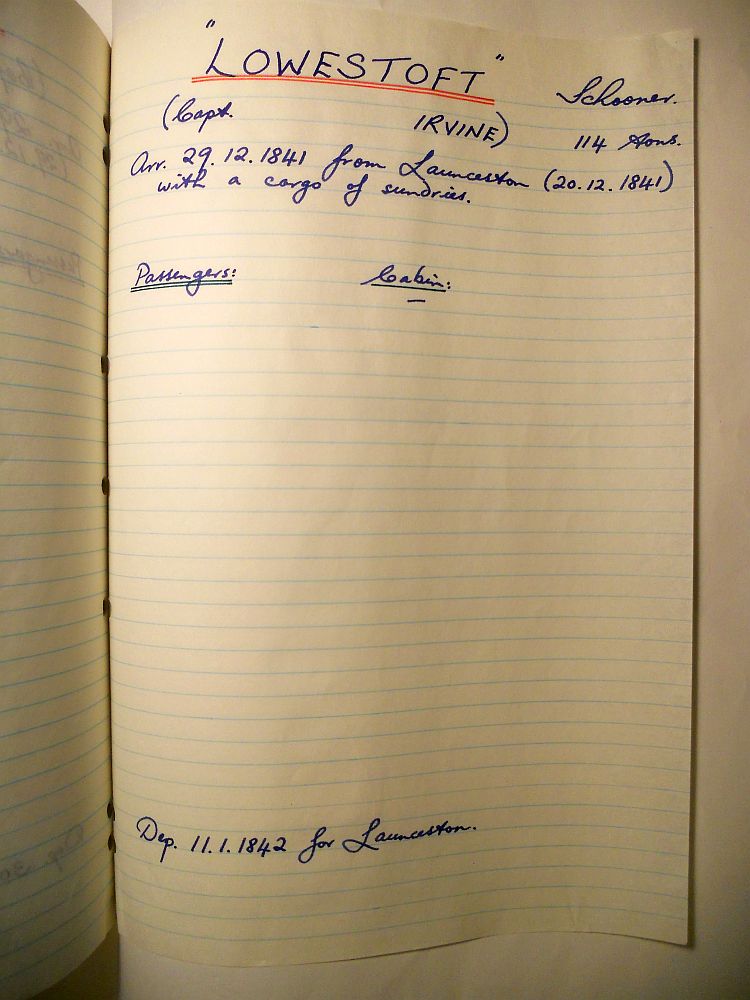 "LOWESTOFT"
Schooner.
(Capt. IRVINE)
114 tons.
Arr. 29.12.1841 from Launceston (20.12.1841)
with a cargo of sundries.
Passengers: Cabin:
—
Dep. 11.1.1842 for Launceston.